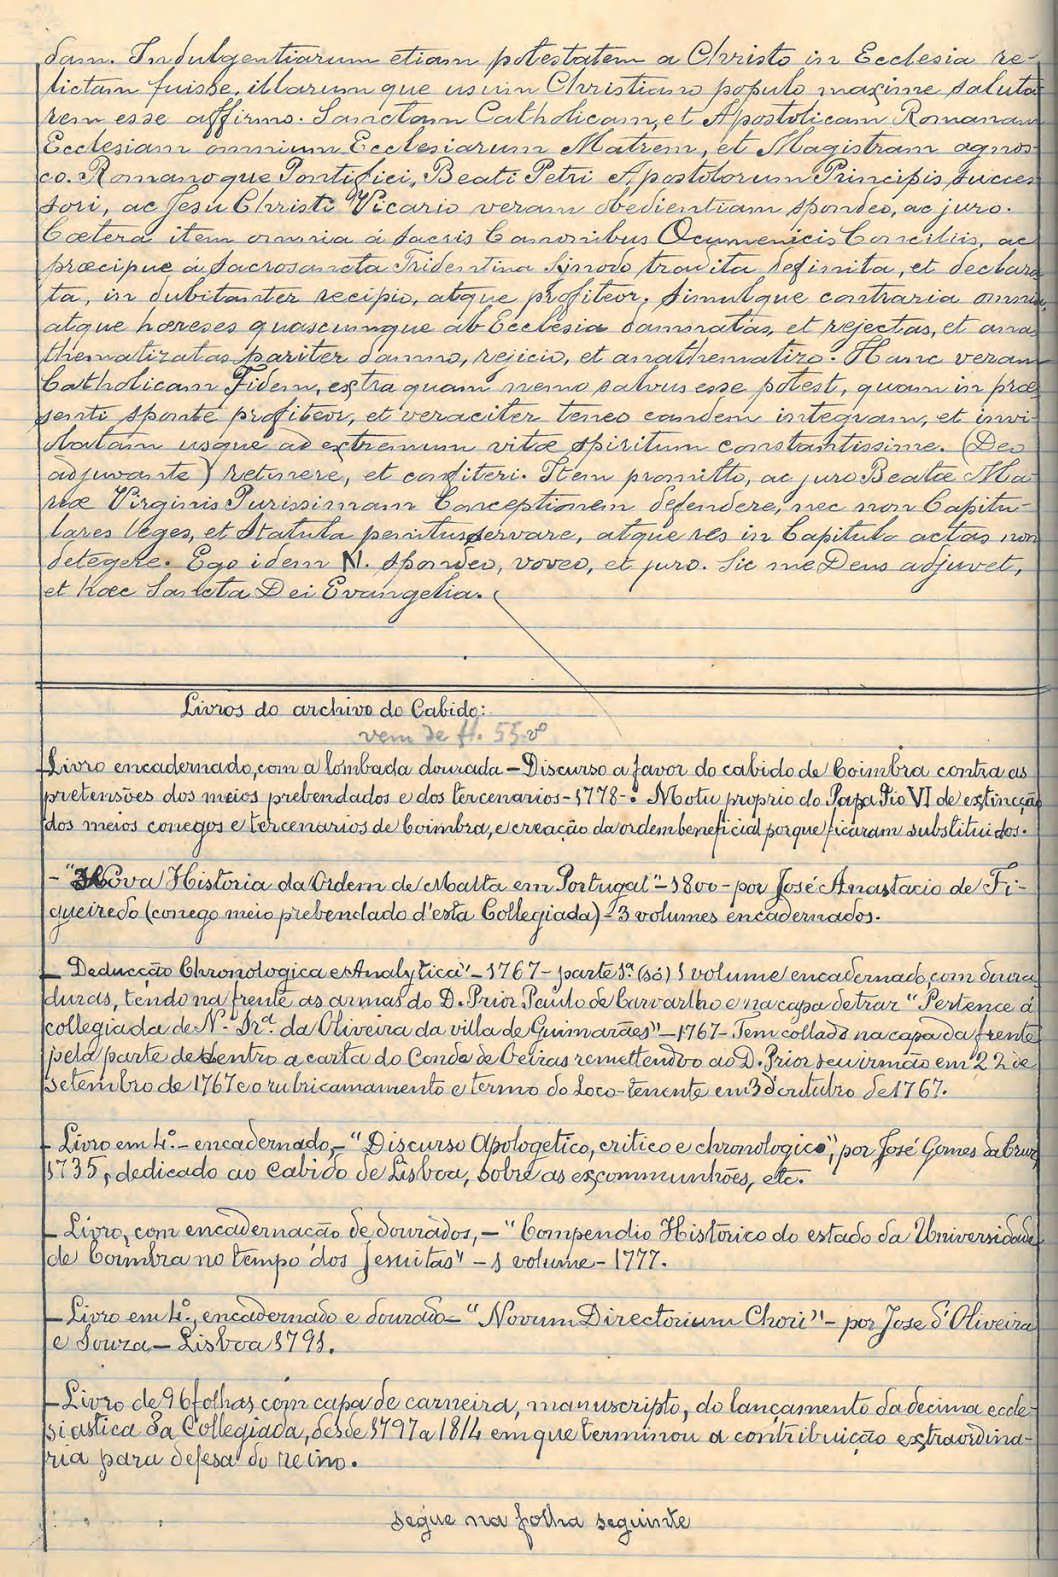 dam. Indulgentiarum etiam potestatem a Christo in Ecclesia re-
lictam fuisse, illarum que usum Christiano populo maxime saluta
rem esse affirmo. Sanctam Catholicam, et Apostolicam Romanam
Ecclesiam omnium Ecclesiarum Matrem, et Magistram agnos-
co. Romano que Pontifici, Beati Petri Apostolorum Principis succes
sori, ac Jesu Christi Vicario veram obedientiam spondeo, ac juro.
Cætera item omnia á sacris Canonibus Ocumenicis Conciliis, ac
præcipue á Sacrosancta Tridentina Synodo tradita definita, et declara
ta, in dubitanter recipio, atque profiteor; simulque contraria omnia,
atque hæreses quascumque ab Ecclesia damnatas, et rejectas, et ana
thematizatas pariter damno, rejicio, et anathematizo. Hanc veram
Catholicam Fidem, extra quam nemo salvus esse potest, quam in præ
senti sponte profiteor, et veraciter teneo eandem integram, et invi
olatam usque ad extremum vitæ spiritum constantissime. (Deo
adjuvante) retinere, et confiteri. Item promitto, ac juro Beatæ Ma
riæ Virginis Purissimam Conceptionem defendere, nec non Capitu-
lares leges, et Statuta penitus servare, atque res in Capitulo actas non
detegere. Ego idem N. spondeo, voveo, et juro. Sic me Deus adjuvet,
et hæc Sancta Dei Evangelia.
Livros do archivo do Cabido:
vem de fl. 55 vº
Livro encadernado, com a lombada dourada – Discurso a favor do cabido de Coimbra contra as
pretensões dos meios prebendados e dos tercenarios – 1778 –. Motu proprio do Papa Pio VI de extincção
dos meios conegos e tercenarios de Coimbra, e creação da ordem beneficial porque ficaram substituidos.
– "Nova Historia da Ordem de Malta em Portugal" – 1800 – por José Anastacio de Fi-
gueiredo (conego meio prebendado d'esta Collegiada) – 3 volumes encadernados.
– Deducção Chronologica e Analytica" – 1767 – parte 1ª (só) 1 volume encadernado, com doura
duras, tendo na frente as armas do D. Prior Paulo de Carvarlho e na capa de traz "Pertence á
collegiada de N. Srª. da Oliveira da villa de Guimarães" – 1767 – Tem collado na capa da frente
pela parte de dentro a carta do Conde de Oeiras remettendo-o ao D. Prior seu irmão em 22 de
setembro de 1767 e o rubricamamento e termo do Loco-tenente em 3 d'outubro de 1767.
– Livro em 4º. – encadernado, – "Discurso Apologetico, critico e chronologico", por José Gomes da Cruz
1735, dedicado ao Cabido de Lisboa, sobre as excommunhões, etc.
– Livro, com encadernação de dourados, – "Compendio Historico do estado da Universidade
de Coimbra no tempo dos Jesuitas" – 1 volume – 1777.
– Livro em 4º., encadernado e dourado – "Novum Directorium Chori" – por Jose d'Oliveira
e Souza – Lisboa 1791.
– Livro de 96 folhas com capa de carneira, manuscripto, do lançamento da decima eccle-
siastica da Collegiada, desde 1797 a 1814 em que terminou a contribuição extraordina-
ria para defesa do reino.
segue na folha seguinte